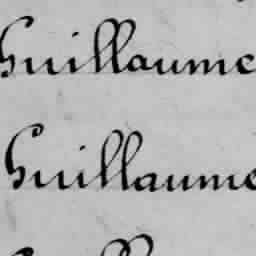 Guillaume
Guillaume